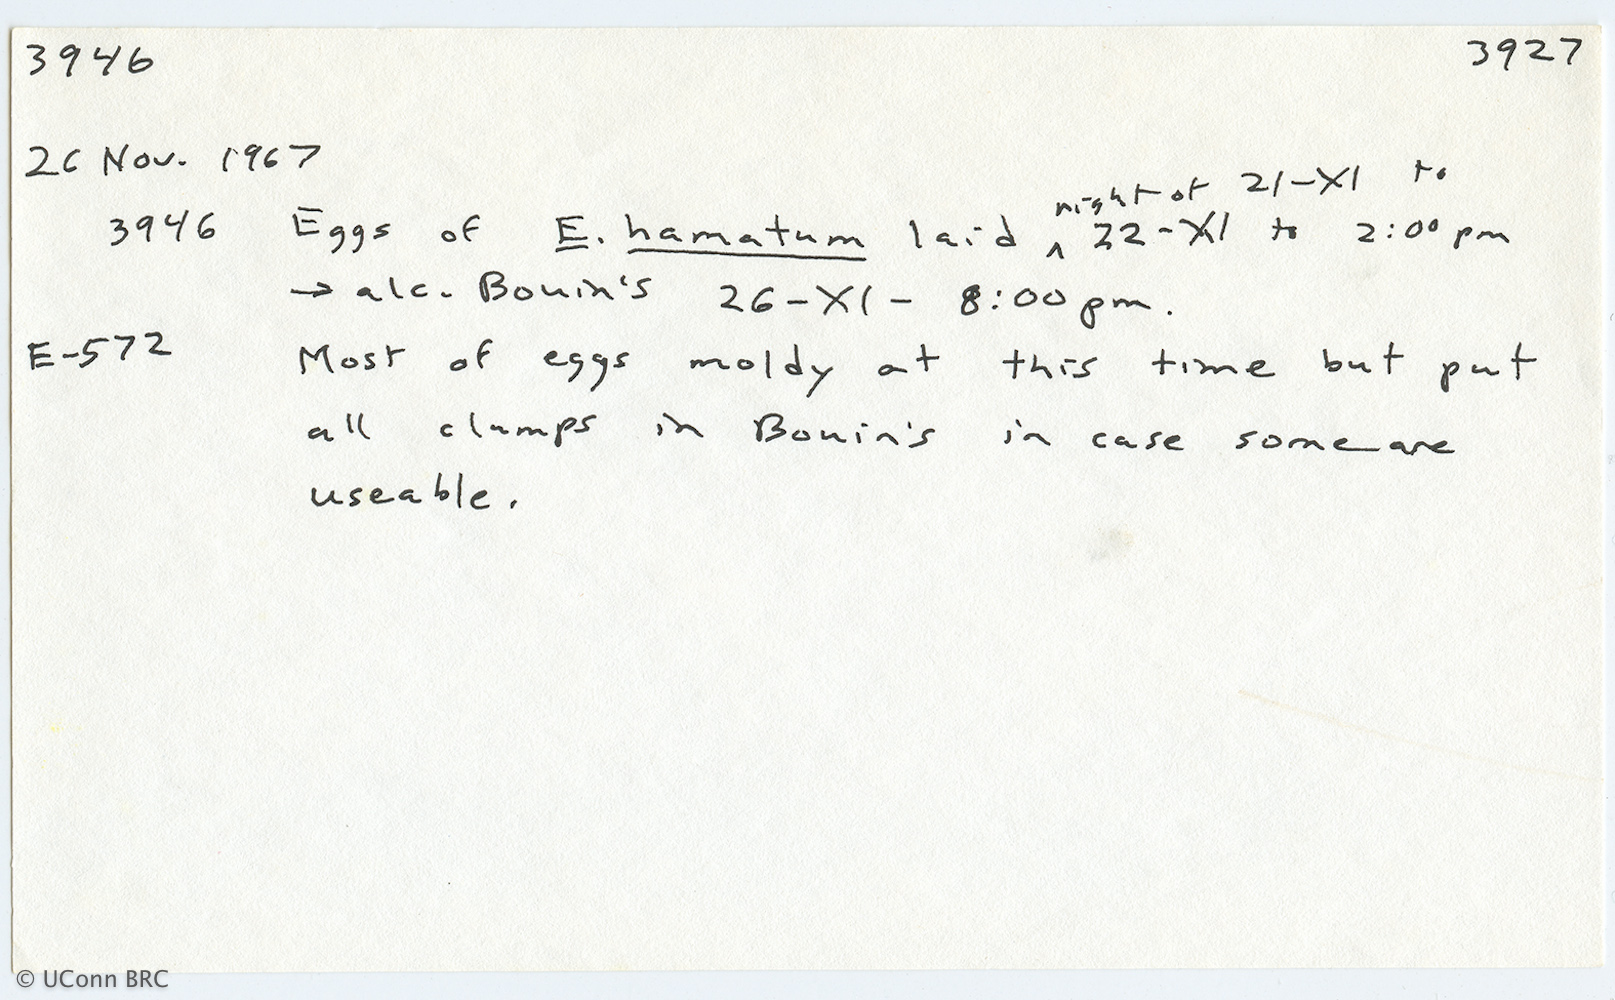 3946 3927
26 Nov. 1967
night of 21-XI to
3946 Eggs of E. hamatum laid ^ 22-XI to 2:00 pm
→ alc. Bouin's 26-XI- 8:00 pm.
E-572 Most of eggs moldy at this time but put
all clumps in Bouin's in case some are
useable.
© UConn BRC